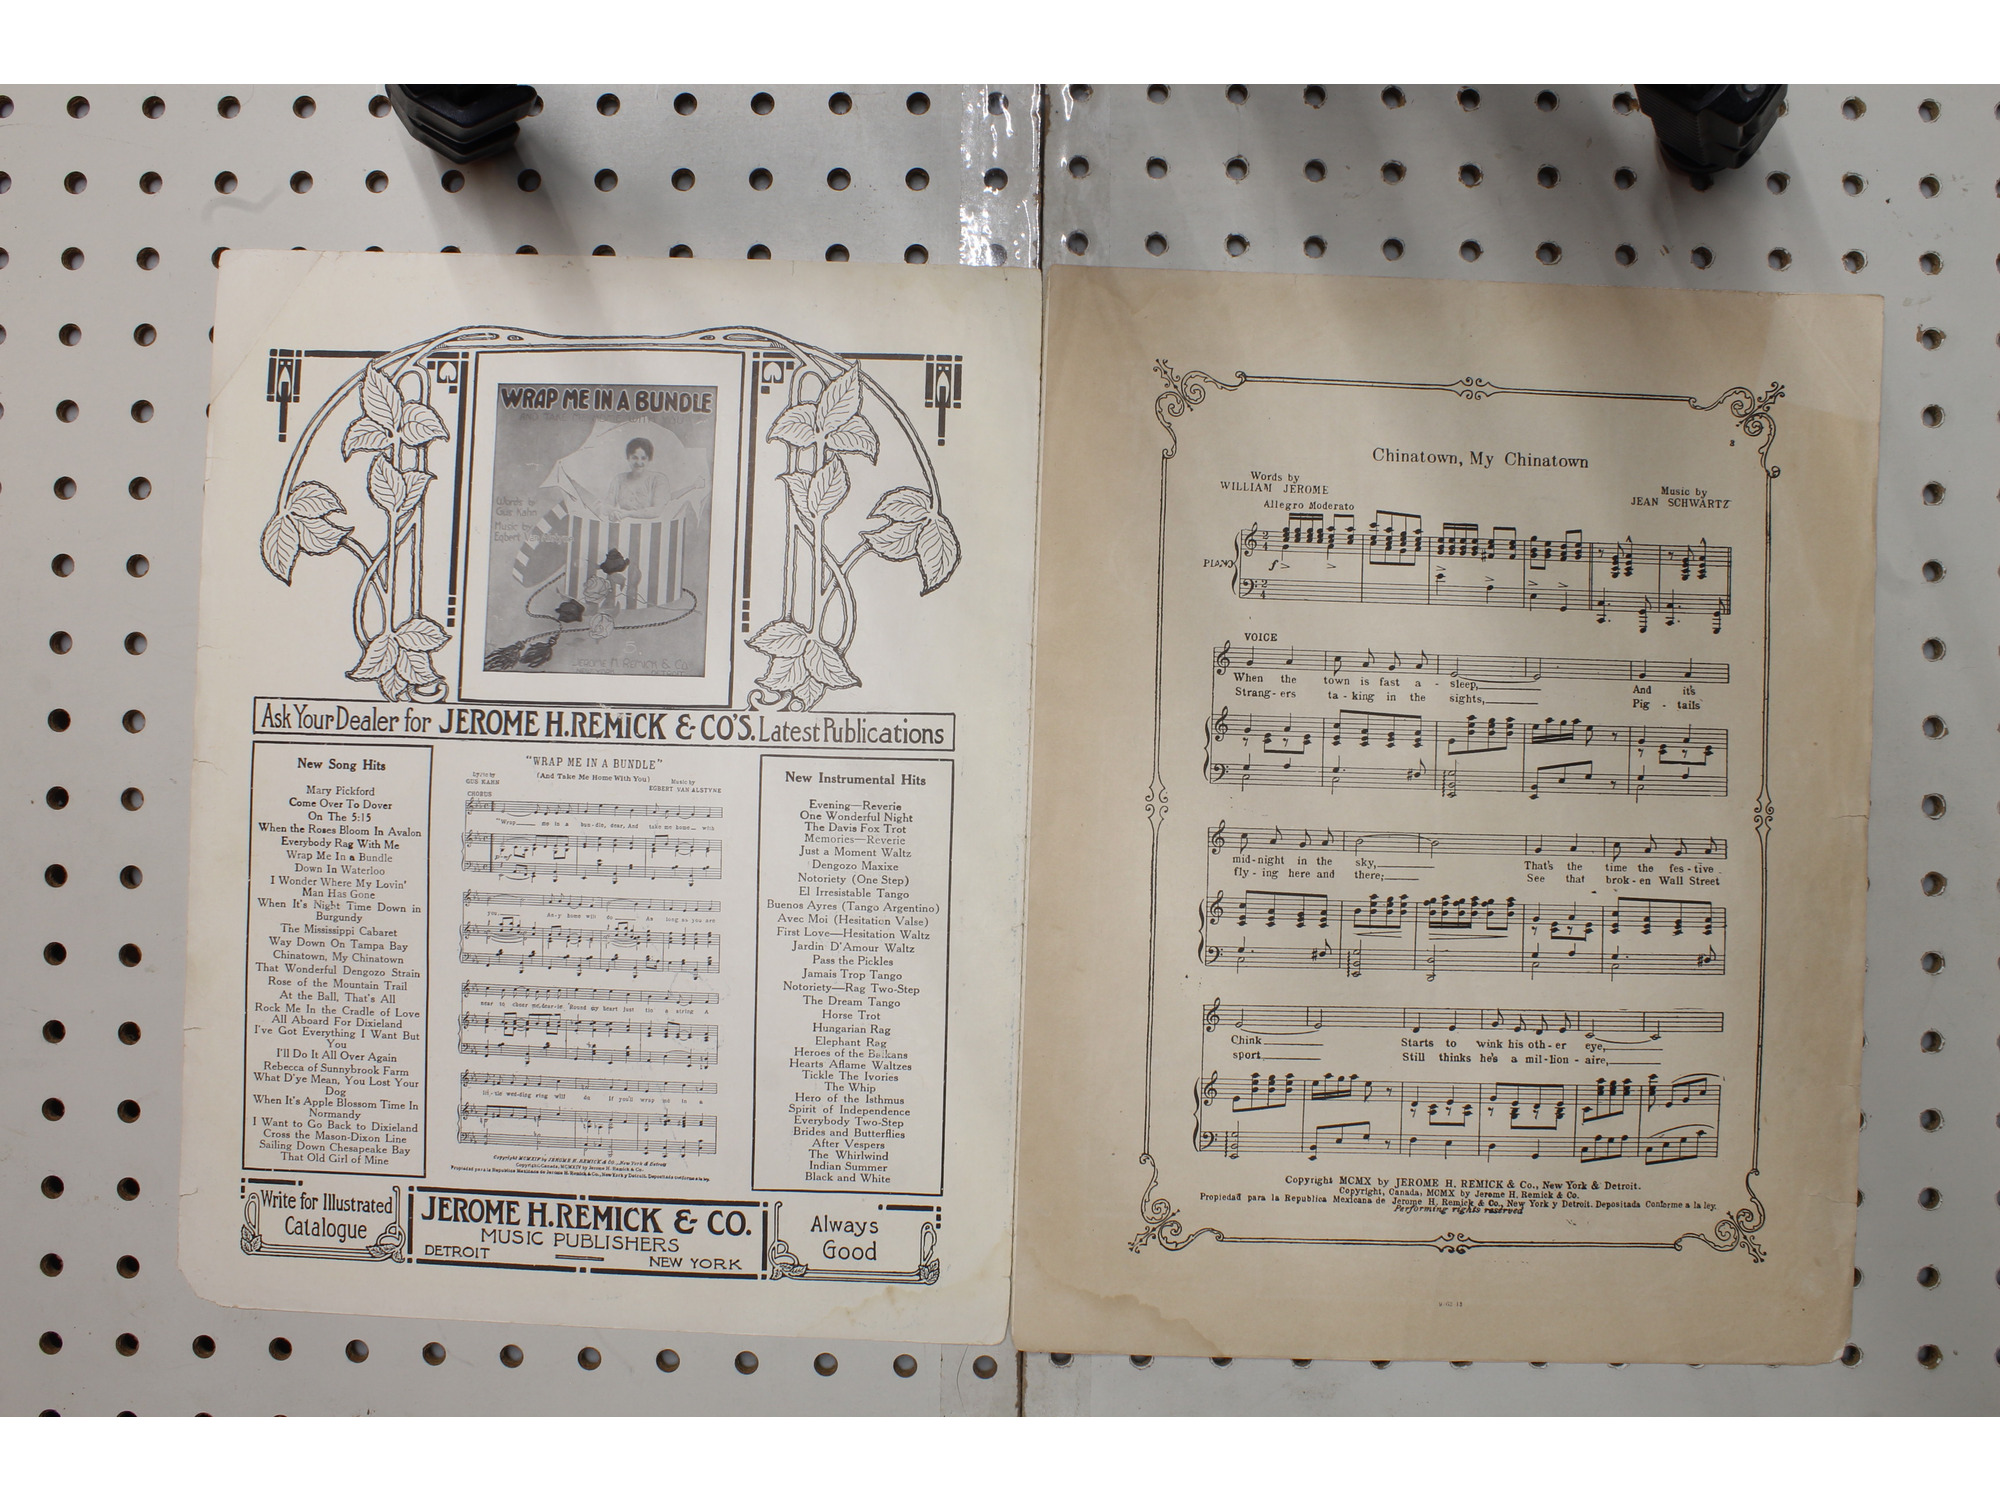 WRAP ME IN A BUNDLE
Words by
Gus Kahn
Music by
Egbert Van
JEROME H. REMICK & CO.
DETROIT
Ask Your Dealer for JEROME H. REMICK & CO'S. Latest Publications
New Song Hits
Mary Pickford
Come Over To Dover
On The 5:15
When the Roses Bloom In Avalon
Everybody Rag With Me
Wrap Me In a Bundle
Down In Waterloo
I Wonder Where My Lovin'
Man Has Gone
When It's Night Time Down in
Burgundy
The Mississippi Cabaret
Way Down On Tampa Bay
Chinatown, My Chinatown
That Wonderful Dengozo Strain
Rose of the Mountain Trail
At the Ball, That's All
Rock Me In the Cradle of Love
All Aboard For Dixieland
I've Got Everything I Want But
You
I'll Do It All Over Again
Rebecca of Sunnybrook Farm
What D'ye Mean, You Lost Your
Dog
When It's Apple Blossom Time In
Normandy
I Want to Go Back to Dixieland
Cross the Mason-Dixon Line
Sailing Down Chesapeake Bay
That Old Girl of Mine
"WRAP ME IN A BUNDLE"
(And Take Me Home With You)
Lyric by
GUS KAHN
Music by
EGBERT VAN ALSTYNE
CHORUS
"Wrap me in a bun-dle, dear, And take me home with
you, An-y home will do As long as you are
near to cheer me, dear-ie 'Round my heart just tie a string A
lit-tle wed-ding ring will do If you'll wrap me in a
Copyright MCMXIV by JEROME H. REMICK & CO., New York & Detroit
Copyright, Canada, MCMXIV by Jerome H. Remick & Co.
Propiedad para la Republica Mexicana de Jerome H. Remick & Co., New York y Detroit. Depositada conforme a la ley.
New Instrumental Hits
Evening—Reverie
One Wonderful Night
The Davis Fox Trot
Memories—Reverie
Just a Moment Waltz
Dengozo Maxixe
Notoriety (One Step)
El Irresistable Tango
Buenos Ayres (Tango Argentino)
Avec Moi (Hesitation Valse)
First Love—Hesitation Waltz
Jardin D'Amour Waltz
Pass the Pickles
Jamais Trop Tango
Notoriety—Rag Two-Step
The Dream Tango
Horse Trot
Hungarian Rag
Elephant Rag
Heroes of the Balkans
Hearts Aflame Waltzes
Tickle The Ivories
The Whip
Hero of the Isthmus
Spirit of Independence
Everybody Two-Step
Brides and Butterflies
After Vespers
The Whirlwind
Indian Summer
Black and White
Write for Illustrated
Catalogue
JEROME H. REMICK & CO.
MUSIC PUBLISHERS
DETROIT
NEW YORK
Always
Good
3
Chinatown, My Chinatown
Words by
WILLIAM JEROME
Music by
JEAN SCHWARTZ
Allegro Moderato
PIANO
f
VOICE
When the town is fast a - sleep, And it's
Strang - ers ta - king in the sights, Pig - tails
mid - night in the sky, That's the time the fes - tive
fly - ing here and there; See that brok - en Wall Street
Chink Starts to wink his oth - er eye,
sport Still thinks he's a mil - lion - aire,
Copyright MCMX by JEROME H. REMICK & Co., New York & Detroit.
Copyright, Canada, MCMX by Jerome H. Remick & Co.
Propiedad para la Republica Mexicana de Jerome H. Remick & Co., New York y Detroit. Depositada Conforme a la ley.
Performing rights reserved